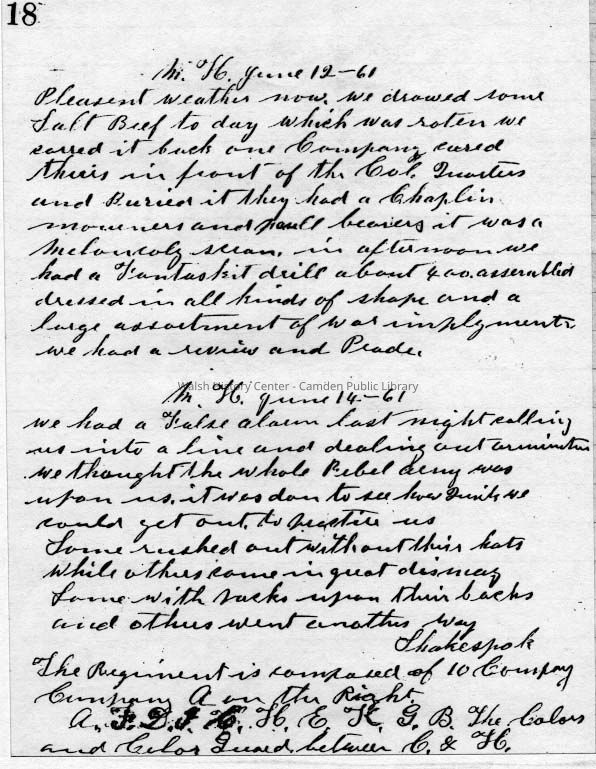 18
M. H. June 12-61
Pleasent weather now. we drawed some
Salt Beef to day which was roten we
carred it back one Company cared
theirs in front of the Col. Quarters
and Buried it they had a Chaplin
mourners and paull bearers it was a
Melancoly scean. in afternoon we
had a Fantaskit drill about 400. assembled
dressed in all kinds of shape and a
large assortment of war implyments
we had a review and Prade.
Walsh History Center - Camden Public Library
M. H. June 14-61
we had a False alarm last night calling
us into a line and dealing out
we thought the whole Rebel army was
upon us. it was don to see how Quick we
could get out. to practice us
Some rushed out without thir hats
while others came in great dismay
Some with sacks upon thir backs
and others went another way
Shakespok
The Regiment is composed of 10 Company
Company A on the Right
A. F. D. I. C. H. E. K. G. B. The Colors
and Color Guard between C. & H.